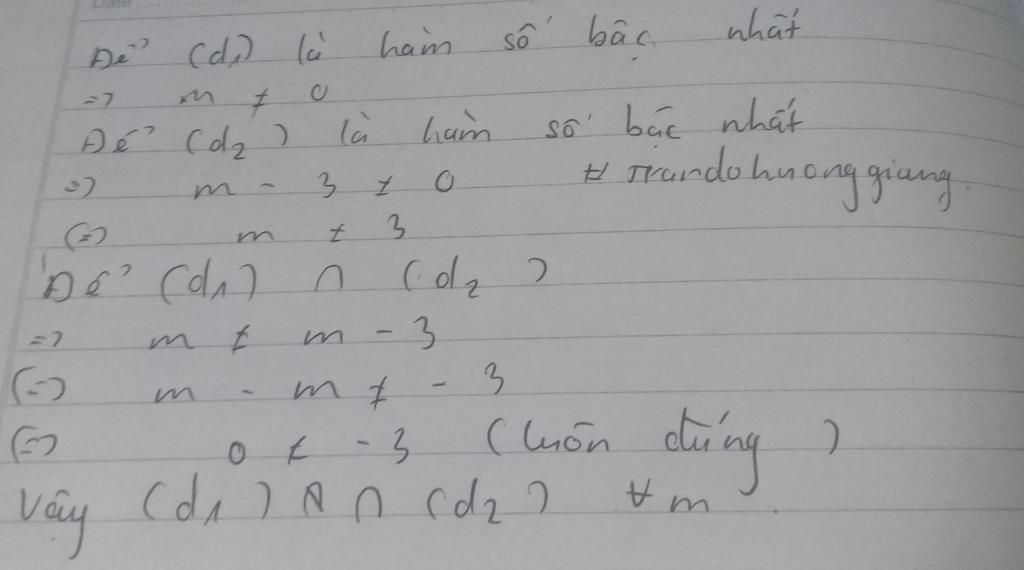 Để (d1) là hàm số bậc nhất
=> m ≠ 0
Để (d2) là hàm số bậc nhất
=> m - 3 ≠ 0 # trandohuonggiang.
(=) m ≠ 3
Để (d1) ∩ (d2)
=> m ≠ m - 3
(=) m - m ≠ - 3
(=) 0 ≠ -3 (luôn đúng)
Vậy (d1) ∩ (d2) ∀ m